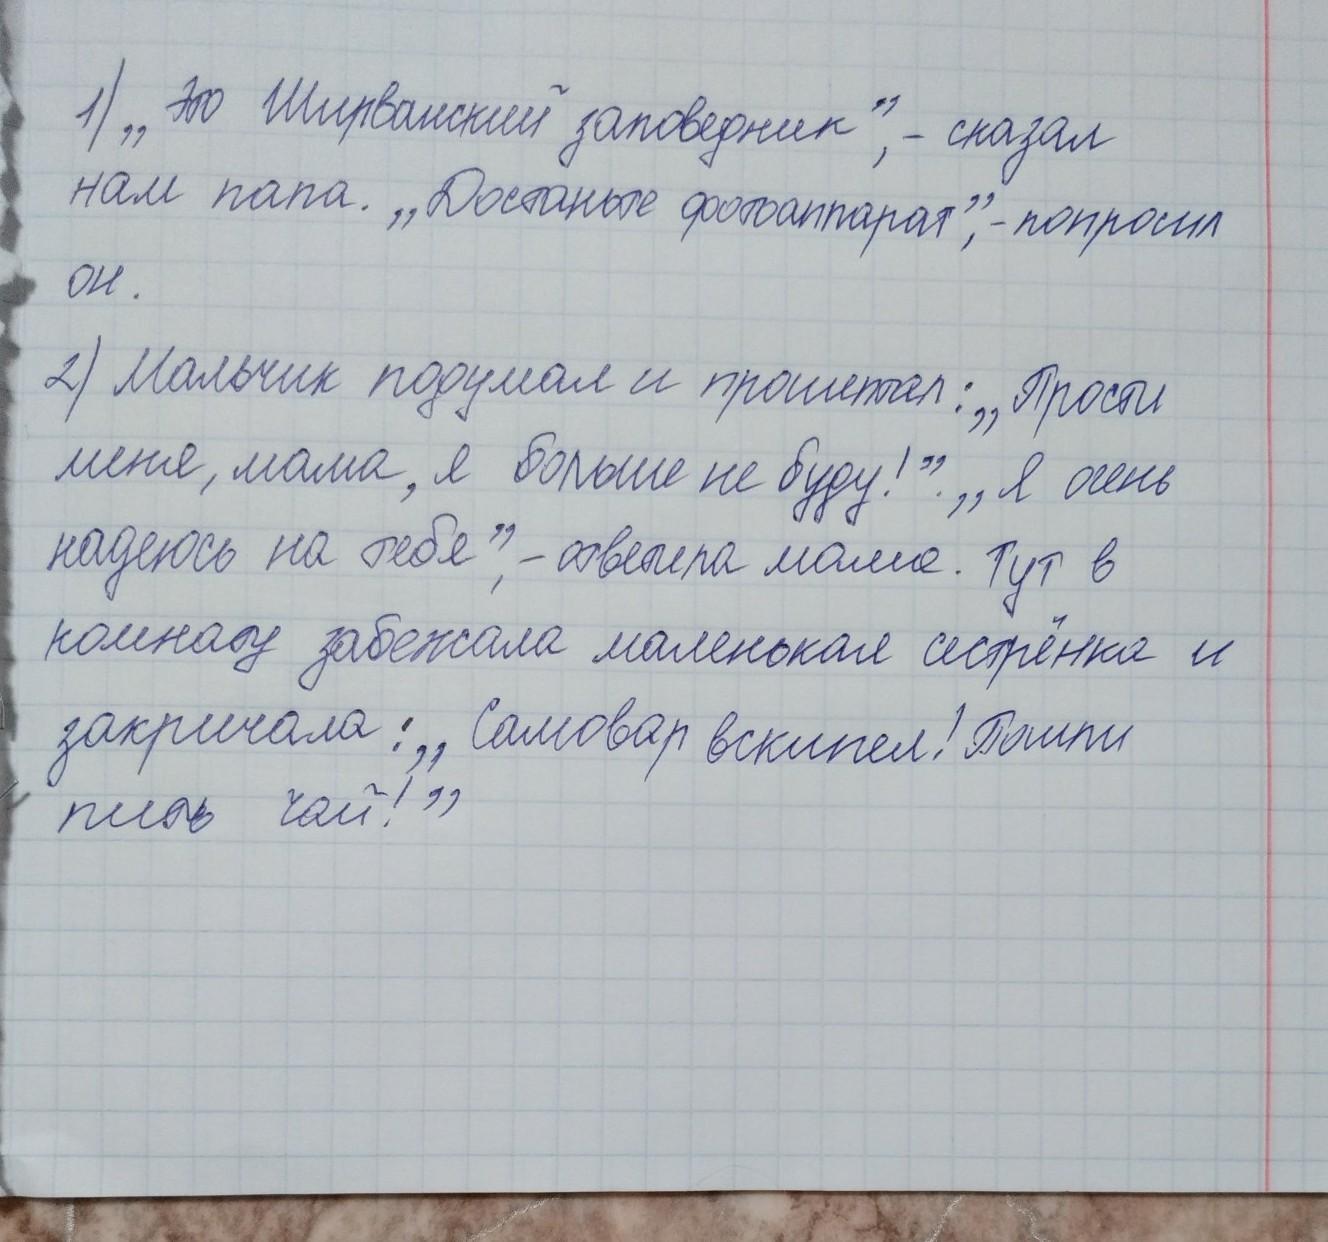 1) „Это Ширванский заповедник”, – сказал
нам папа. „Достаньте фотоаппарат”, – попросил
он.
2) Мальчик подумал и прошептал: „Прости
меня, мама, я больше не буду!”. „Я очень
надеюсь на тебя”, – ответила мама. Тут в
комнату забежала маленькая сестрёнка и
закричала: „Самовар вскипел! Пошли
пить чай!”